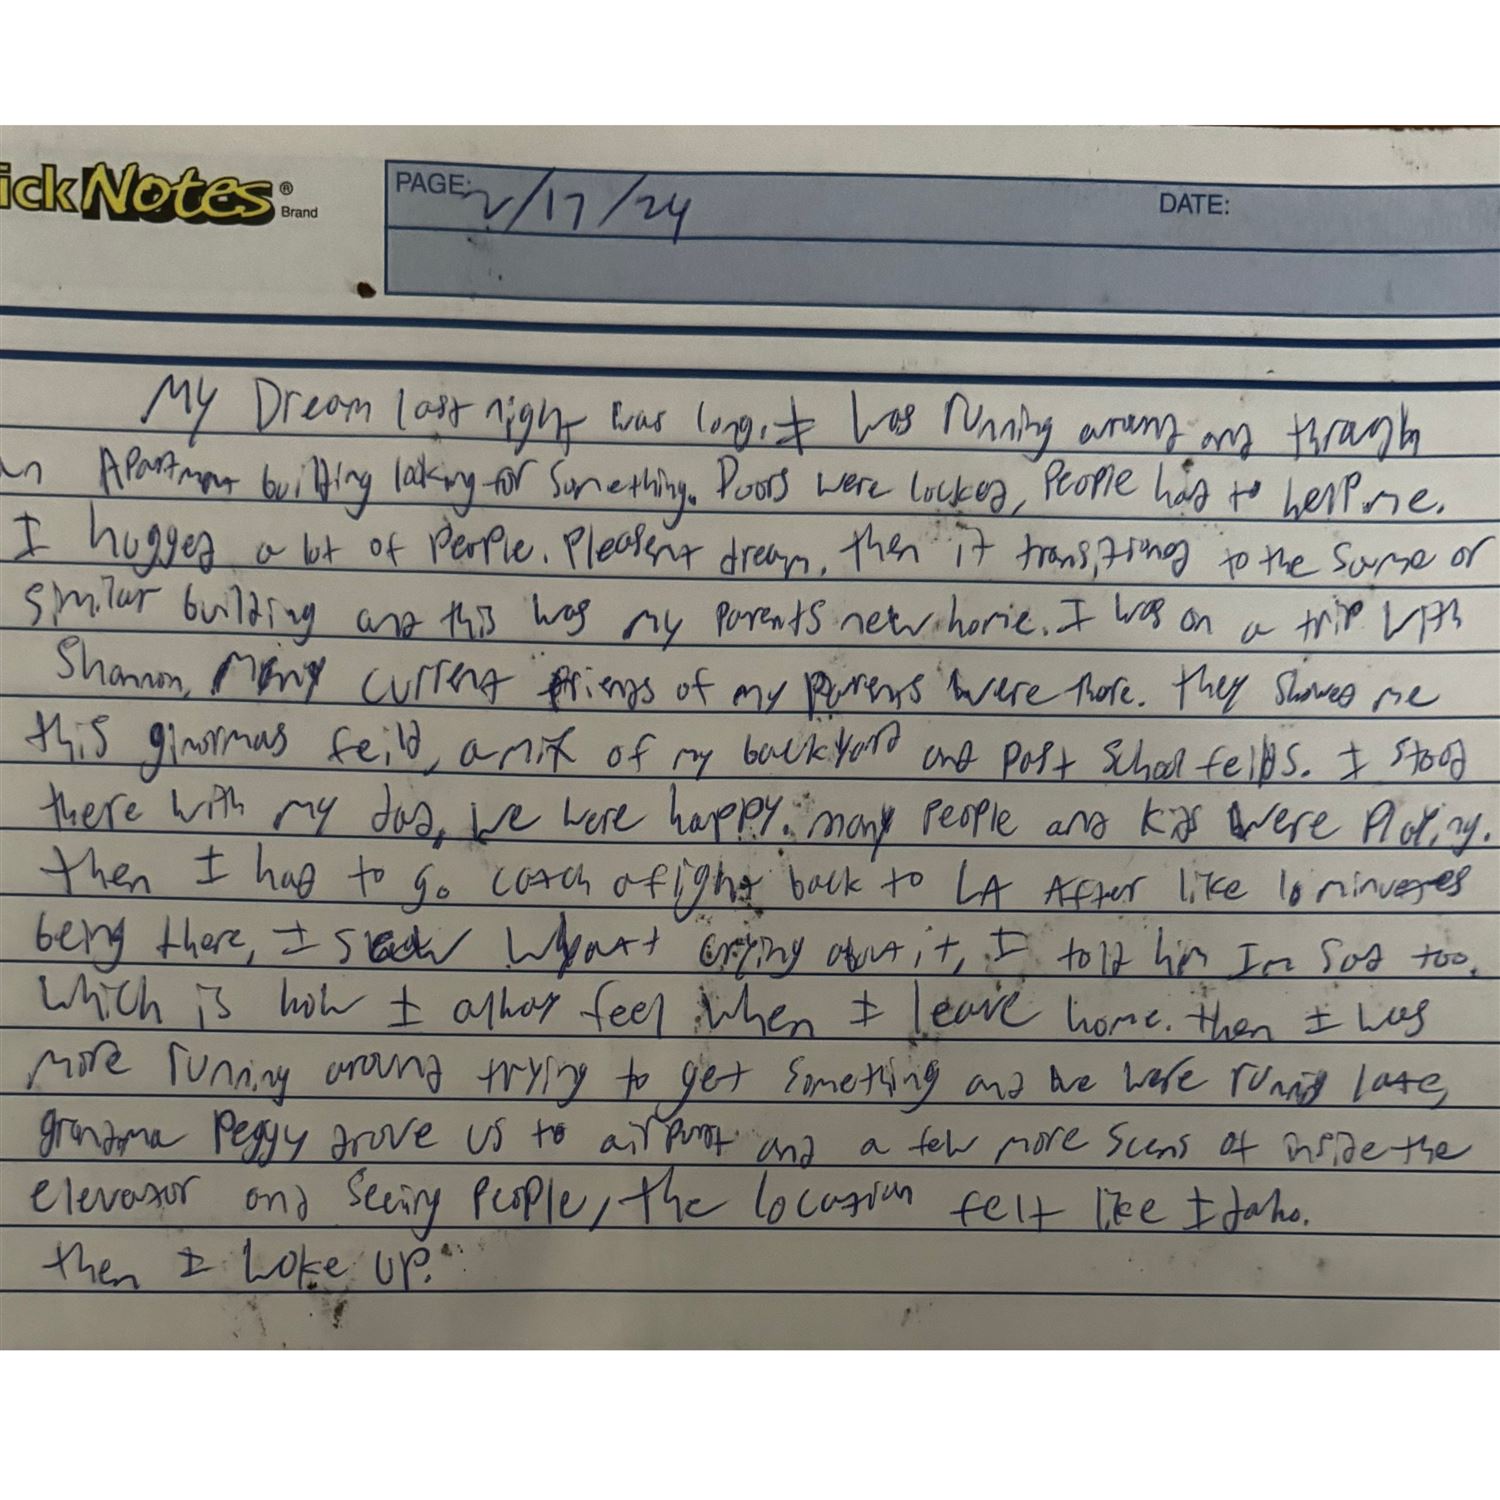 ickNotes® Brand
PAGE: 2/17/24 DATE:
My Dream last night was long. I was running around and through
an Apartment building looking for something. Doors were locked, People had to help me.
I hugged a lot of People. Pleasent dream, then it transitioned to the same or
similar building and this was my parents new home. I was on a trip with
Shannon, Many current friends of my parents were there. they showed me
this ginormas feild, a mix of my backyard and past school feilds. I stood
there with my dad, we were happy. many people and kids were playing.
then I had to go catch a flight back to LA After like 10 minutes
being there, I saw Wyatt crying about it, I told him Im sad too.
which is how I alway feel when I leave home. then I was
more running around trying to get something and we were running late,
grandma Peggy drove us to airport and a few more scens of inside the
elevator and seeing people, the location felt like Idaho.
then I woke up.